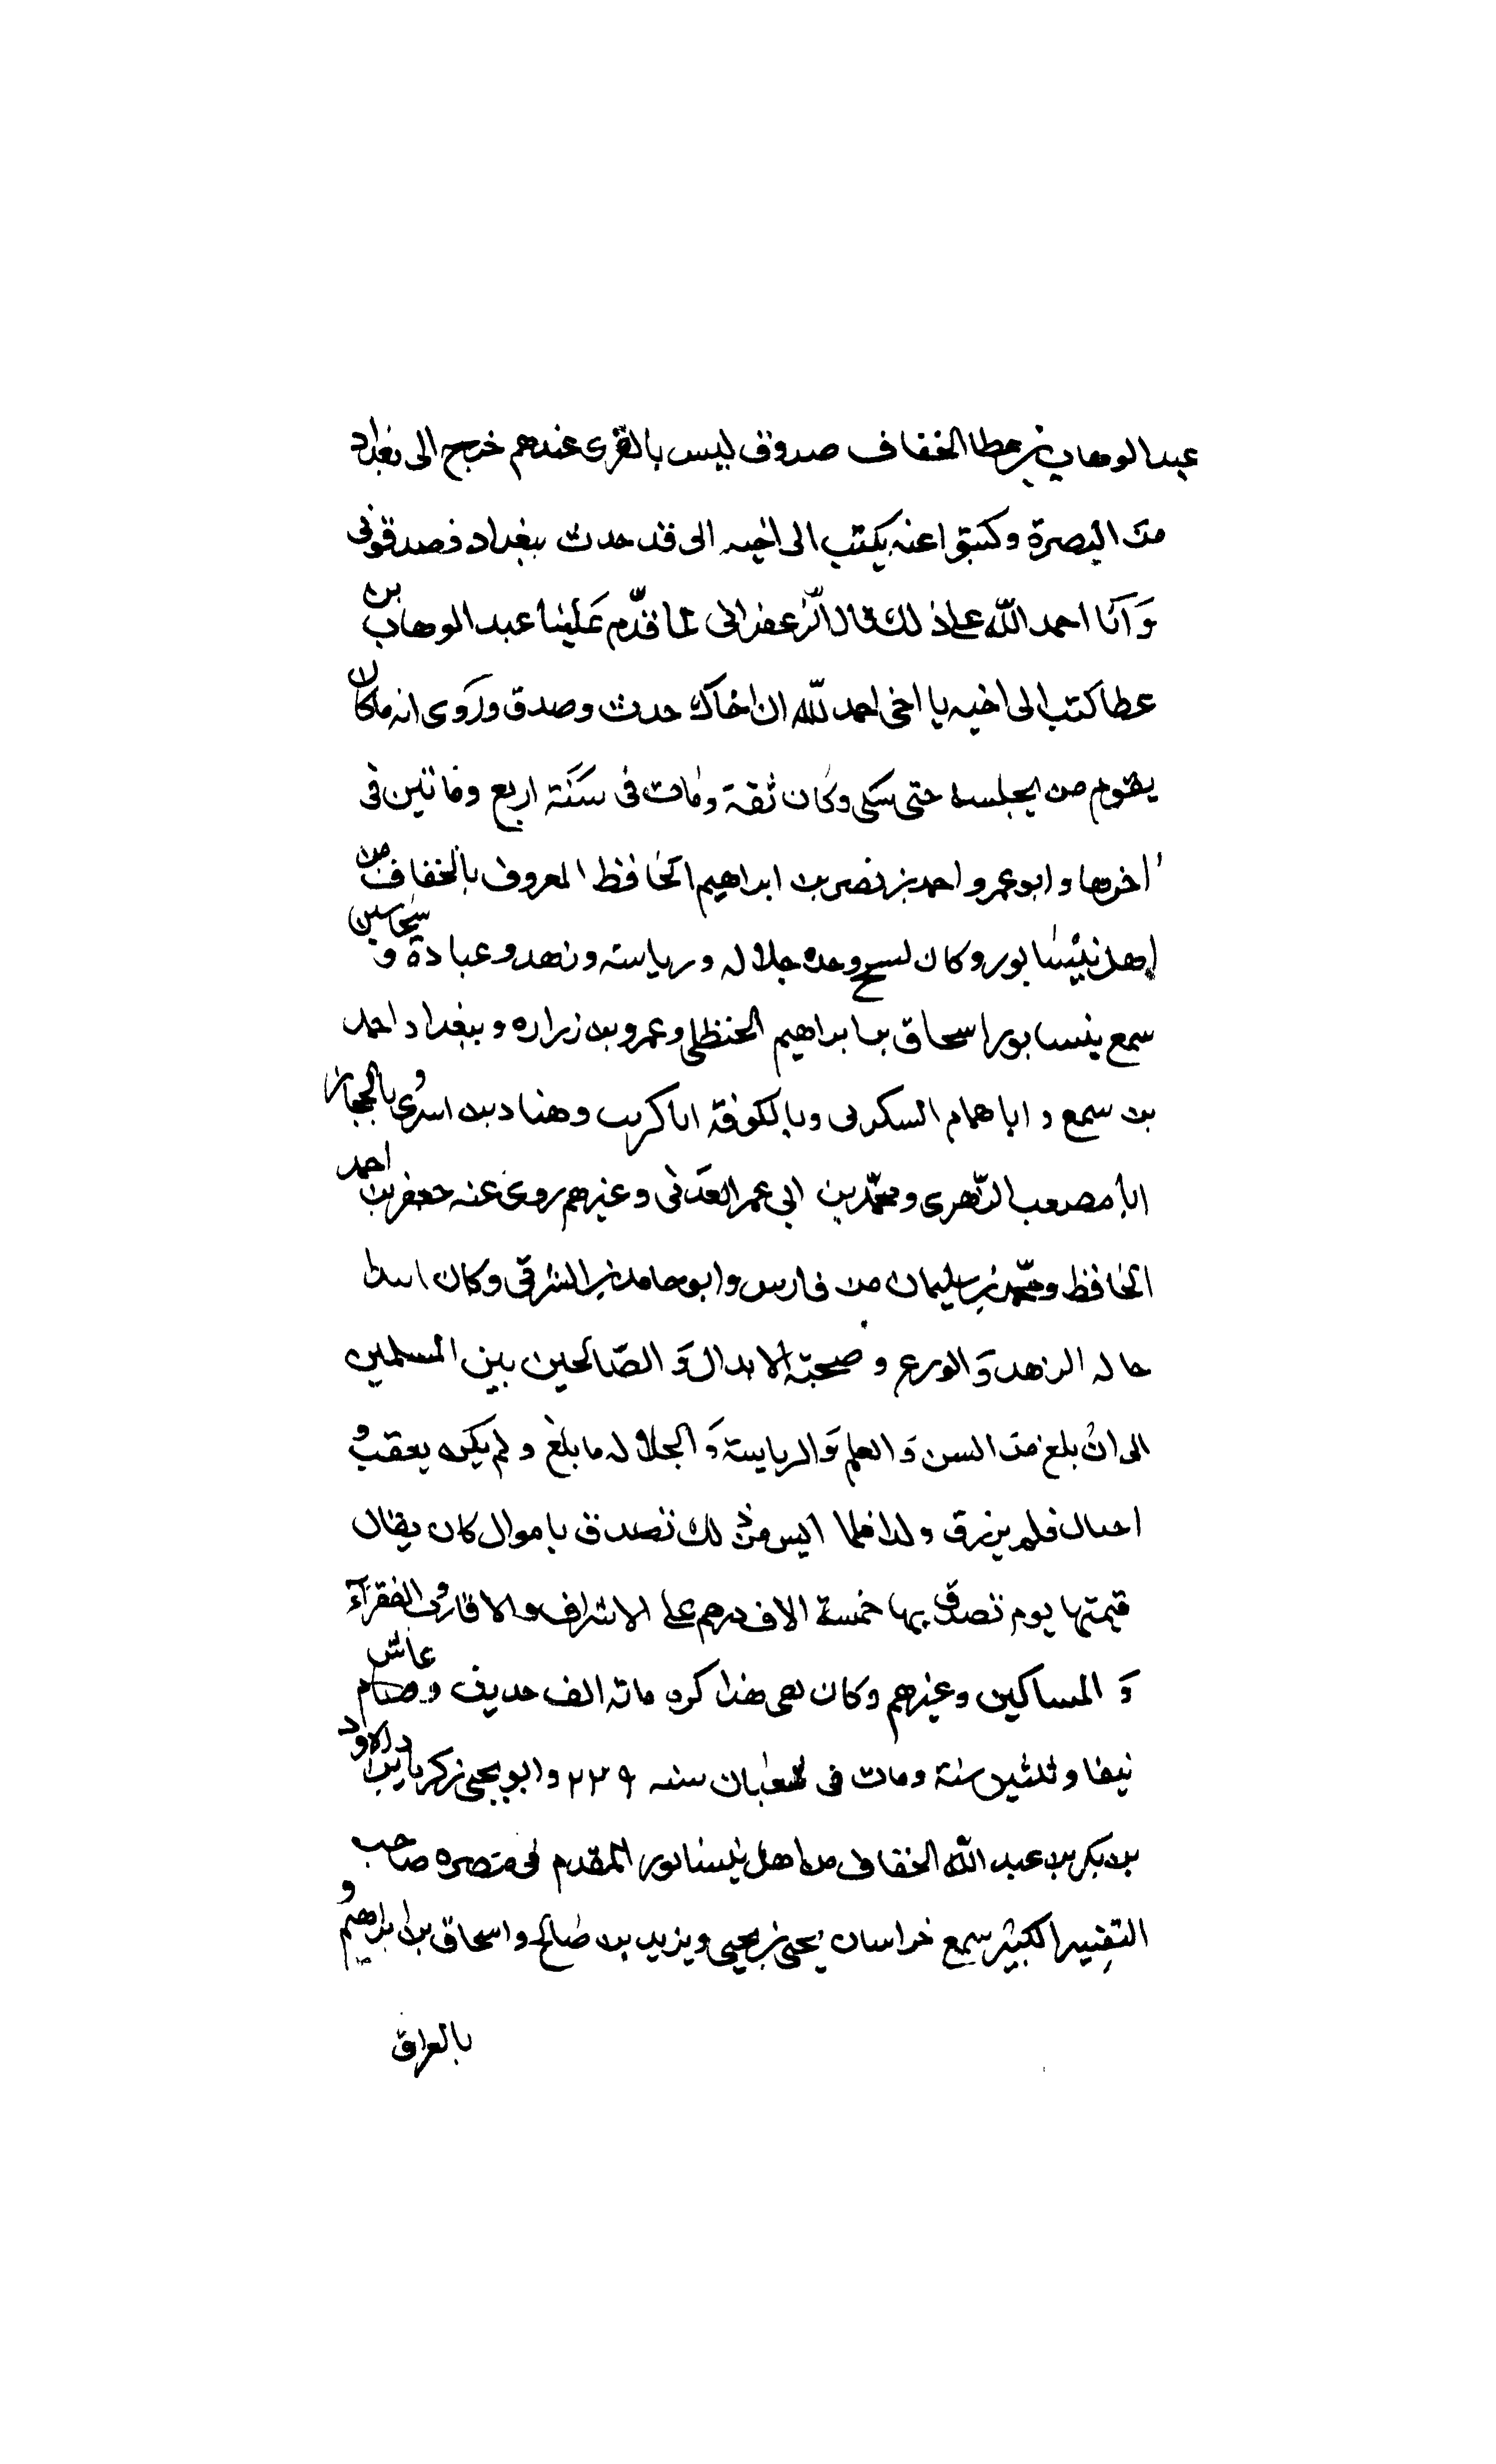 عبد الوهاب بن عطا الخفاف صدوق ليس بالقوى عندهم خرج الى بغداد
من البصرة وكتبوا عنه يكتب الى اخيه الى قد حدث ببغداد فصدقونى
وَآنا احمد الله على ذلك قال الزعفرانى لما قدّم عَلينا عبد الوهاب بن
عطا كتب الى اخيه يا اخى احمد لله ان اخاك حدث وصدق ورَوى انه ما كان
يقوم من مجلسه حتى يبكى وكان ثقة ومات فى سَنَة اربع وماتين فى
اخرها وابو عمرو احمد بن نصر بن ابراهيم الحافظ المعروف بالخفاف من
اهل نيسابور وكان نسيج وحده جلاله ورياسته وزهد وعبادة و
سمع بنيسابور اسحاق بن ابراهيم الحنظلى وعمرو بن زراره وببغداد احمد
بن سمع وابا همام السكونى وبالكوفة ابا كريب وهناد بن السرى وبالحجاز
ابا مصعب الزهرى ومحمّد بن ابى عمر العدَنى وغيرهم روى عنه جعفر بن احمد
الحافظ ومحمّد بن سليمان بن فارس وابو حامد بن الشرقى وكان ابتدا
حاله الزهد وَالورع و صحبة الابدال وَ الصّالحين بين المسلمين
الى ان بلغ من السن وَ العلم وَالرياسة وَ الجلاله ما بلغ ولم يكن يعقب و
احتال فلم يرزق ولدا فلما ايس من ذلك تصدق باموال كان يقال
قيمتها يوم تصدق بها خمسة الاف درهم على الاشراف والاقارب والفقرآء
وَ المساكين وغيرهم وكان يفى بمذاكره مائة الف حديث وصام عاش
نيفا وثلثين سنة ومات فى شعبان سنه ٢٢٩ وابو يحيى زكريا بن داود
بن بكر بن عبد الله الخفاف من اهل نيسابور المقدم فى عصره صاحب
التفسير الكبير سمع خراسان يحيى بن يحيى ويزيد بن صالح واسحاق بن ابراهيم و
بالعراق